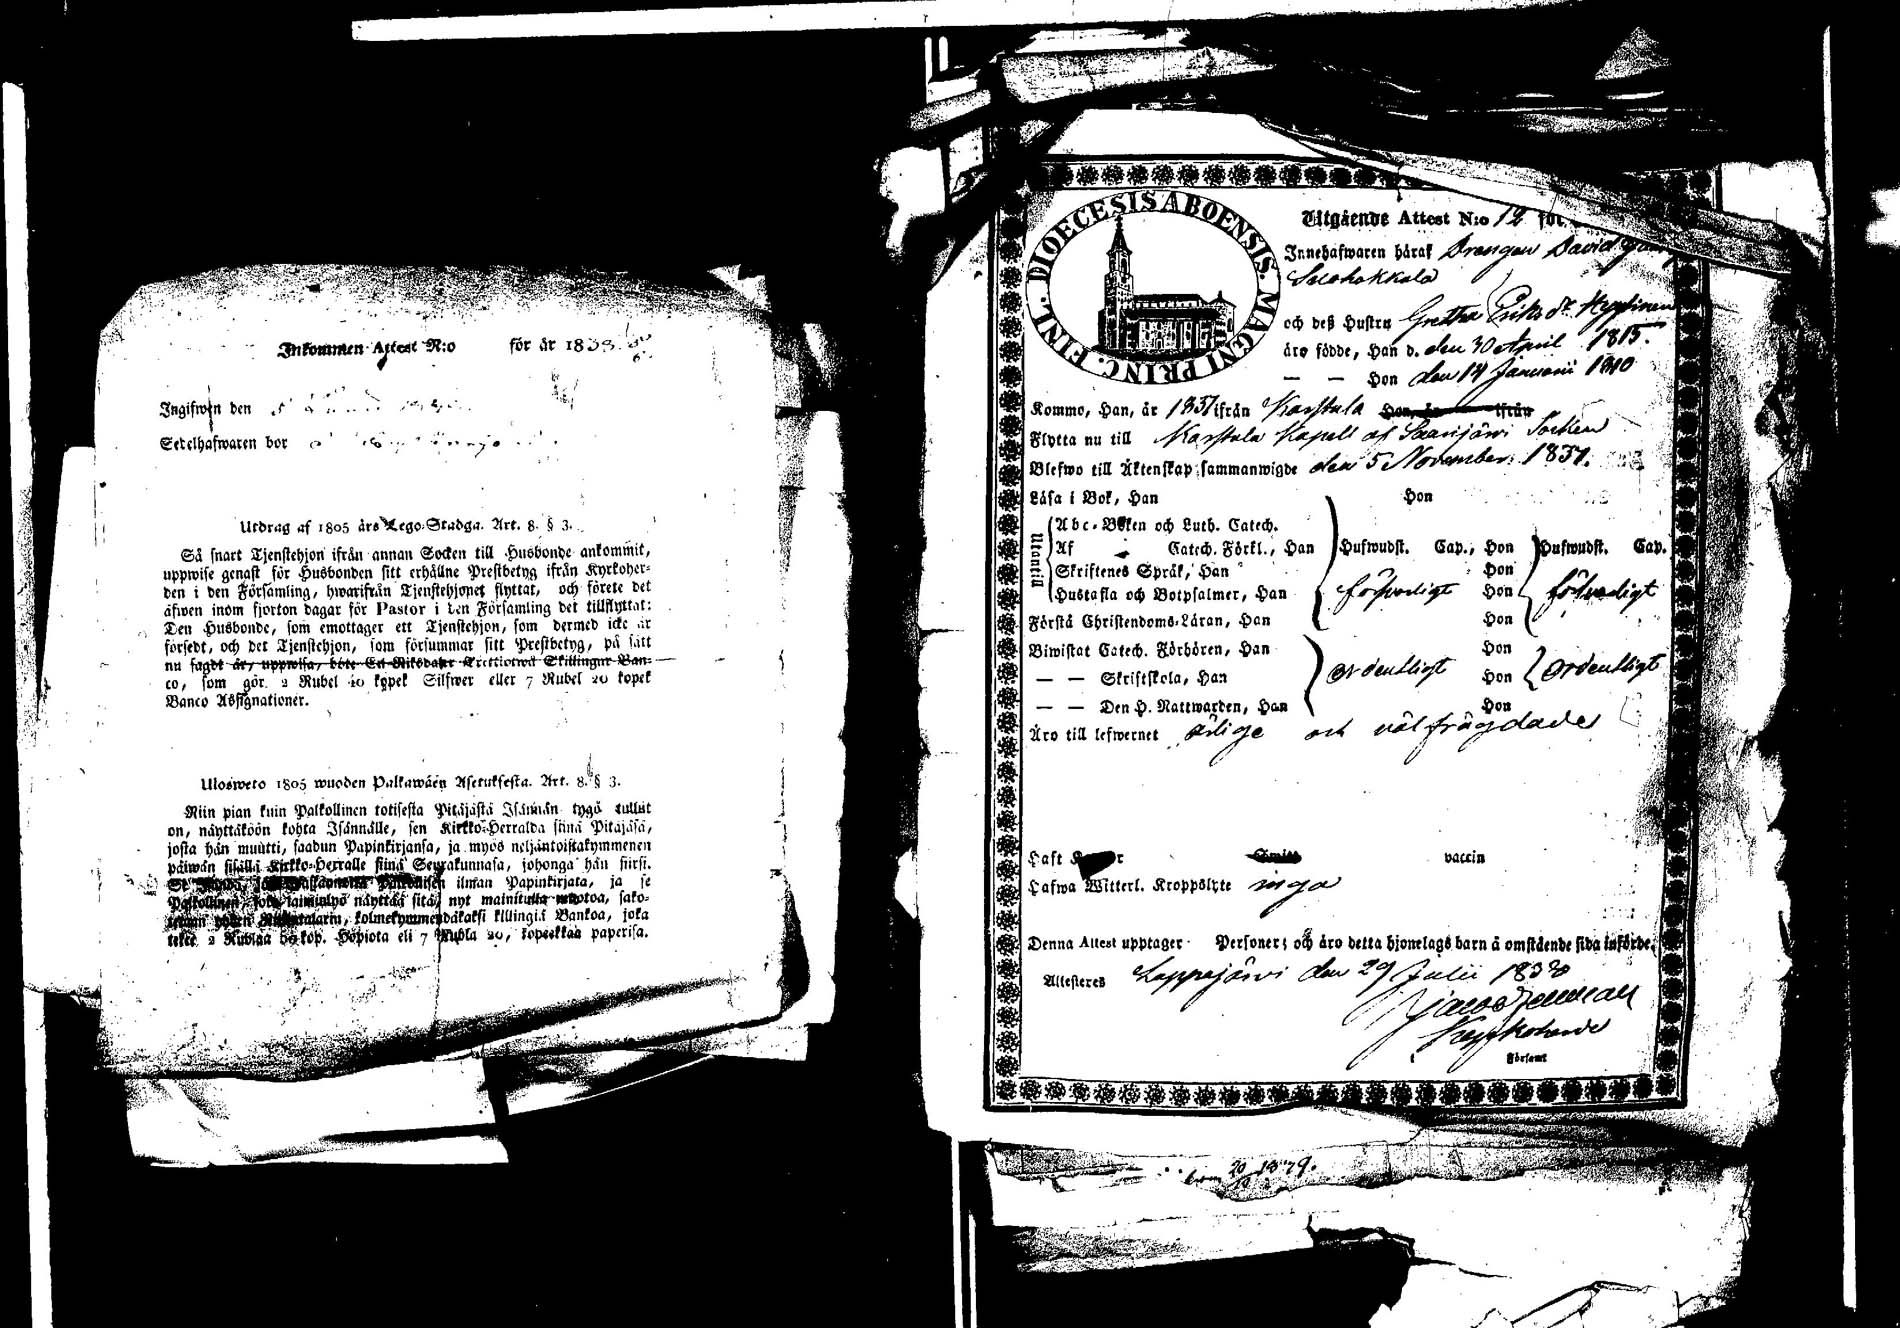 Inkommen Attest N:o för år 1838.
Ingifwen den
Sedelhafwaren bor
Utdrag af 1805 års Lego-Stadga. Art. 8. § 3.
Så snart Tjenstehjon ifrån annan Socken till Husbonde ankommit,
uppwise genast för Husbonden sitt erhållne Prestbetyg ifrån Kyrkoher-
den i den Församling, hwarifrån Tjenstehjonet flyttat, och förete det
äfwen inom fjorton dagar för Pastor i den Församling det tillflyttat:
Den Husbonde, som emottager ett Tjenstehjon, som dermed icke är
försedt, och det Tjenstehjon, som försummar sitt Prestbetyg, på sätt
nu sagdt är, uppwisa, böte En Riksdaler Trettiotwå Skillingar Ban-
co, som gör 2 Rubel 10 kopek Silfwer eller 7 Rubel 20 kopek
Banco Assignationer.
Ulosweto 1805 wuoden Palkawäen Asetuksesta. Art. 8. § 3.
Niin pian kuin Palkollinen toisesta Pitäjästä Isännän tygö tullut
on, näyttäköön kohta Isännälle, sen Kirkko-Herralda siinä Pitäjäsä,
josta hän muutti, saadun Papinkirjansa, ja myös neljäntoistakymmenen
päiwän sisällä Kirkko-Herralle siinä Seurakunnasa, johonga hän siirsi.
ilman Papinkirjata, ja se
Palkollinen, joka laiminlyö näyttää sitä, nyt mainitulla muotoa, sako-
kolmekymmendäkaksi killingiä Bankoa, joka
tekee 2 Rublaa kop. Hopiota eli 7 Rubla 20, kopeekkaa paperisa.
FINL. DIOECESIS ABOENSIS. MAGNI PRINC.
Utgående Attest N:o 12 för
Innehafwaren häraf Drengen David
Suohokkala
och deß Hustru Gretha Eriks dr
äro födde, Han d. den 30 April 1815.
— — Hon den 14 Januarii 1810
Kommo, Han, år 1837 ifrån Karstula Hon, år ifrån
Flytta nu till Karstula Kapell af Saarijärvi Socken
Blefwo till Äktenskap sammanwigde den 5 November 1837.
Läsa i Bok, Han Hon
Utantill
Abc-Boken och Luth. Catech.
Af Catech. Förkl., Han Hufwudst. Cap., Hon Hufwudst. Cap.
Skriftenes Språk, Han Hon
Hustafla och Botpsalmer, Han försvarligt Hon försvarligt
Förstå Christendoms-Läran, Han Hon
Biwistat Catech. Förhören, Han Hon
— — Skriftskola, Han ordentligt Hon ordentligt
— — Den H. Nattwarden, Han Hon
Äro till lefwernet ärlige och välfrägdade
Haft vaccin
Hafwa Witterl. Kroppslyte inga
Denna Attest upptager Personer; och äro detta hjonelags barn å omstående sida införde.
Attesteres Lappajärvi den 29 Julii 1838
Kyrkoherde
Församl
20 1879.